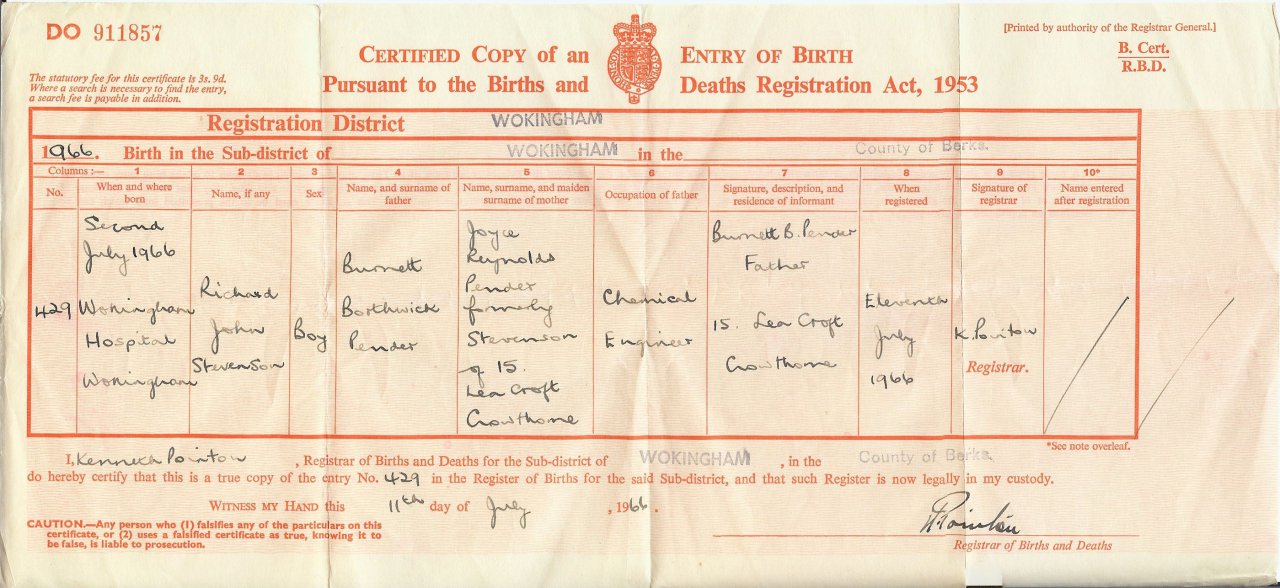 DO 911857
[Printed by authority of the Registrar General.]
B. Cert.
R.B.D.
CERTIFIED COPY of an ENTRY OF BIRTH
Pursuant to the Births and Deaths Registration Act, 1953
The statutory fee for this certificate is 3s. 9d.
Where a search is necessary to find the entry,
a search fee is payable in addition.
Registration District WOKINGHAM
1966. Birth in the Sub-district of WOKINGHAM in the County of Berks.
Columns :— 1 2 3 4 5 6 7 8 9 10*
No.
When and where
born
Name, if any
Sex
Name, and surname of
father
Name, surname, and maiden
surname of mother
Occupation of father
Signature, description, and
residence of informant
When
registered
Signature of
registrar
Name entered
after registration
429
Second
July 1966
Wokingham
Hospital
Wokingham
Richard
John
Stevenson
Boy
Burnett
Borthwick
Pender
Joyce
Reynolds
Pender
formerly
Stevenson
of 15.
Lea Croft
Crowthorne
Chemical
Engineer
Burnett B. Pender
Father
15. Lea Croft
Crowthorne
Eleventh
July
1966
K. Pointon
Registrar.
*See note overleaf.
I, Kenneth Pointon, Registrar of Births and Deaths for the Sub-district of WOKINGHAM, in the County of Berks.
do hereby certify that this is a true copy of the entry No. 429 in the Register of Births for the said Sub-district, and that such Register is now legally in my custody.
WITNESS MY HAND this 11th day of July, 1966.
CAUTION.—Any person who (1) falsifies any of the particulars on this
certificate, or (2) uses a falsified certificate as true, knowing it to
be false, is liable to prosecution.
K Pointon
Registrar of Births and Deaths